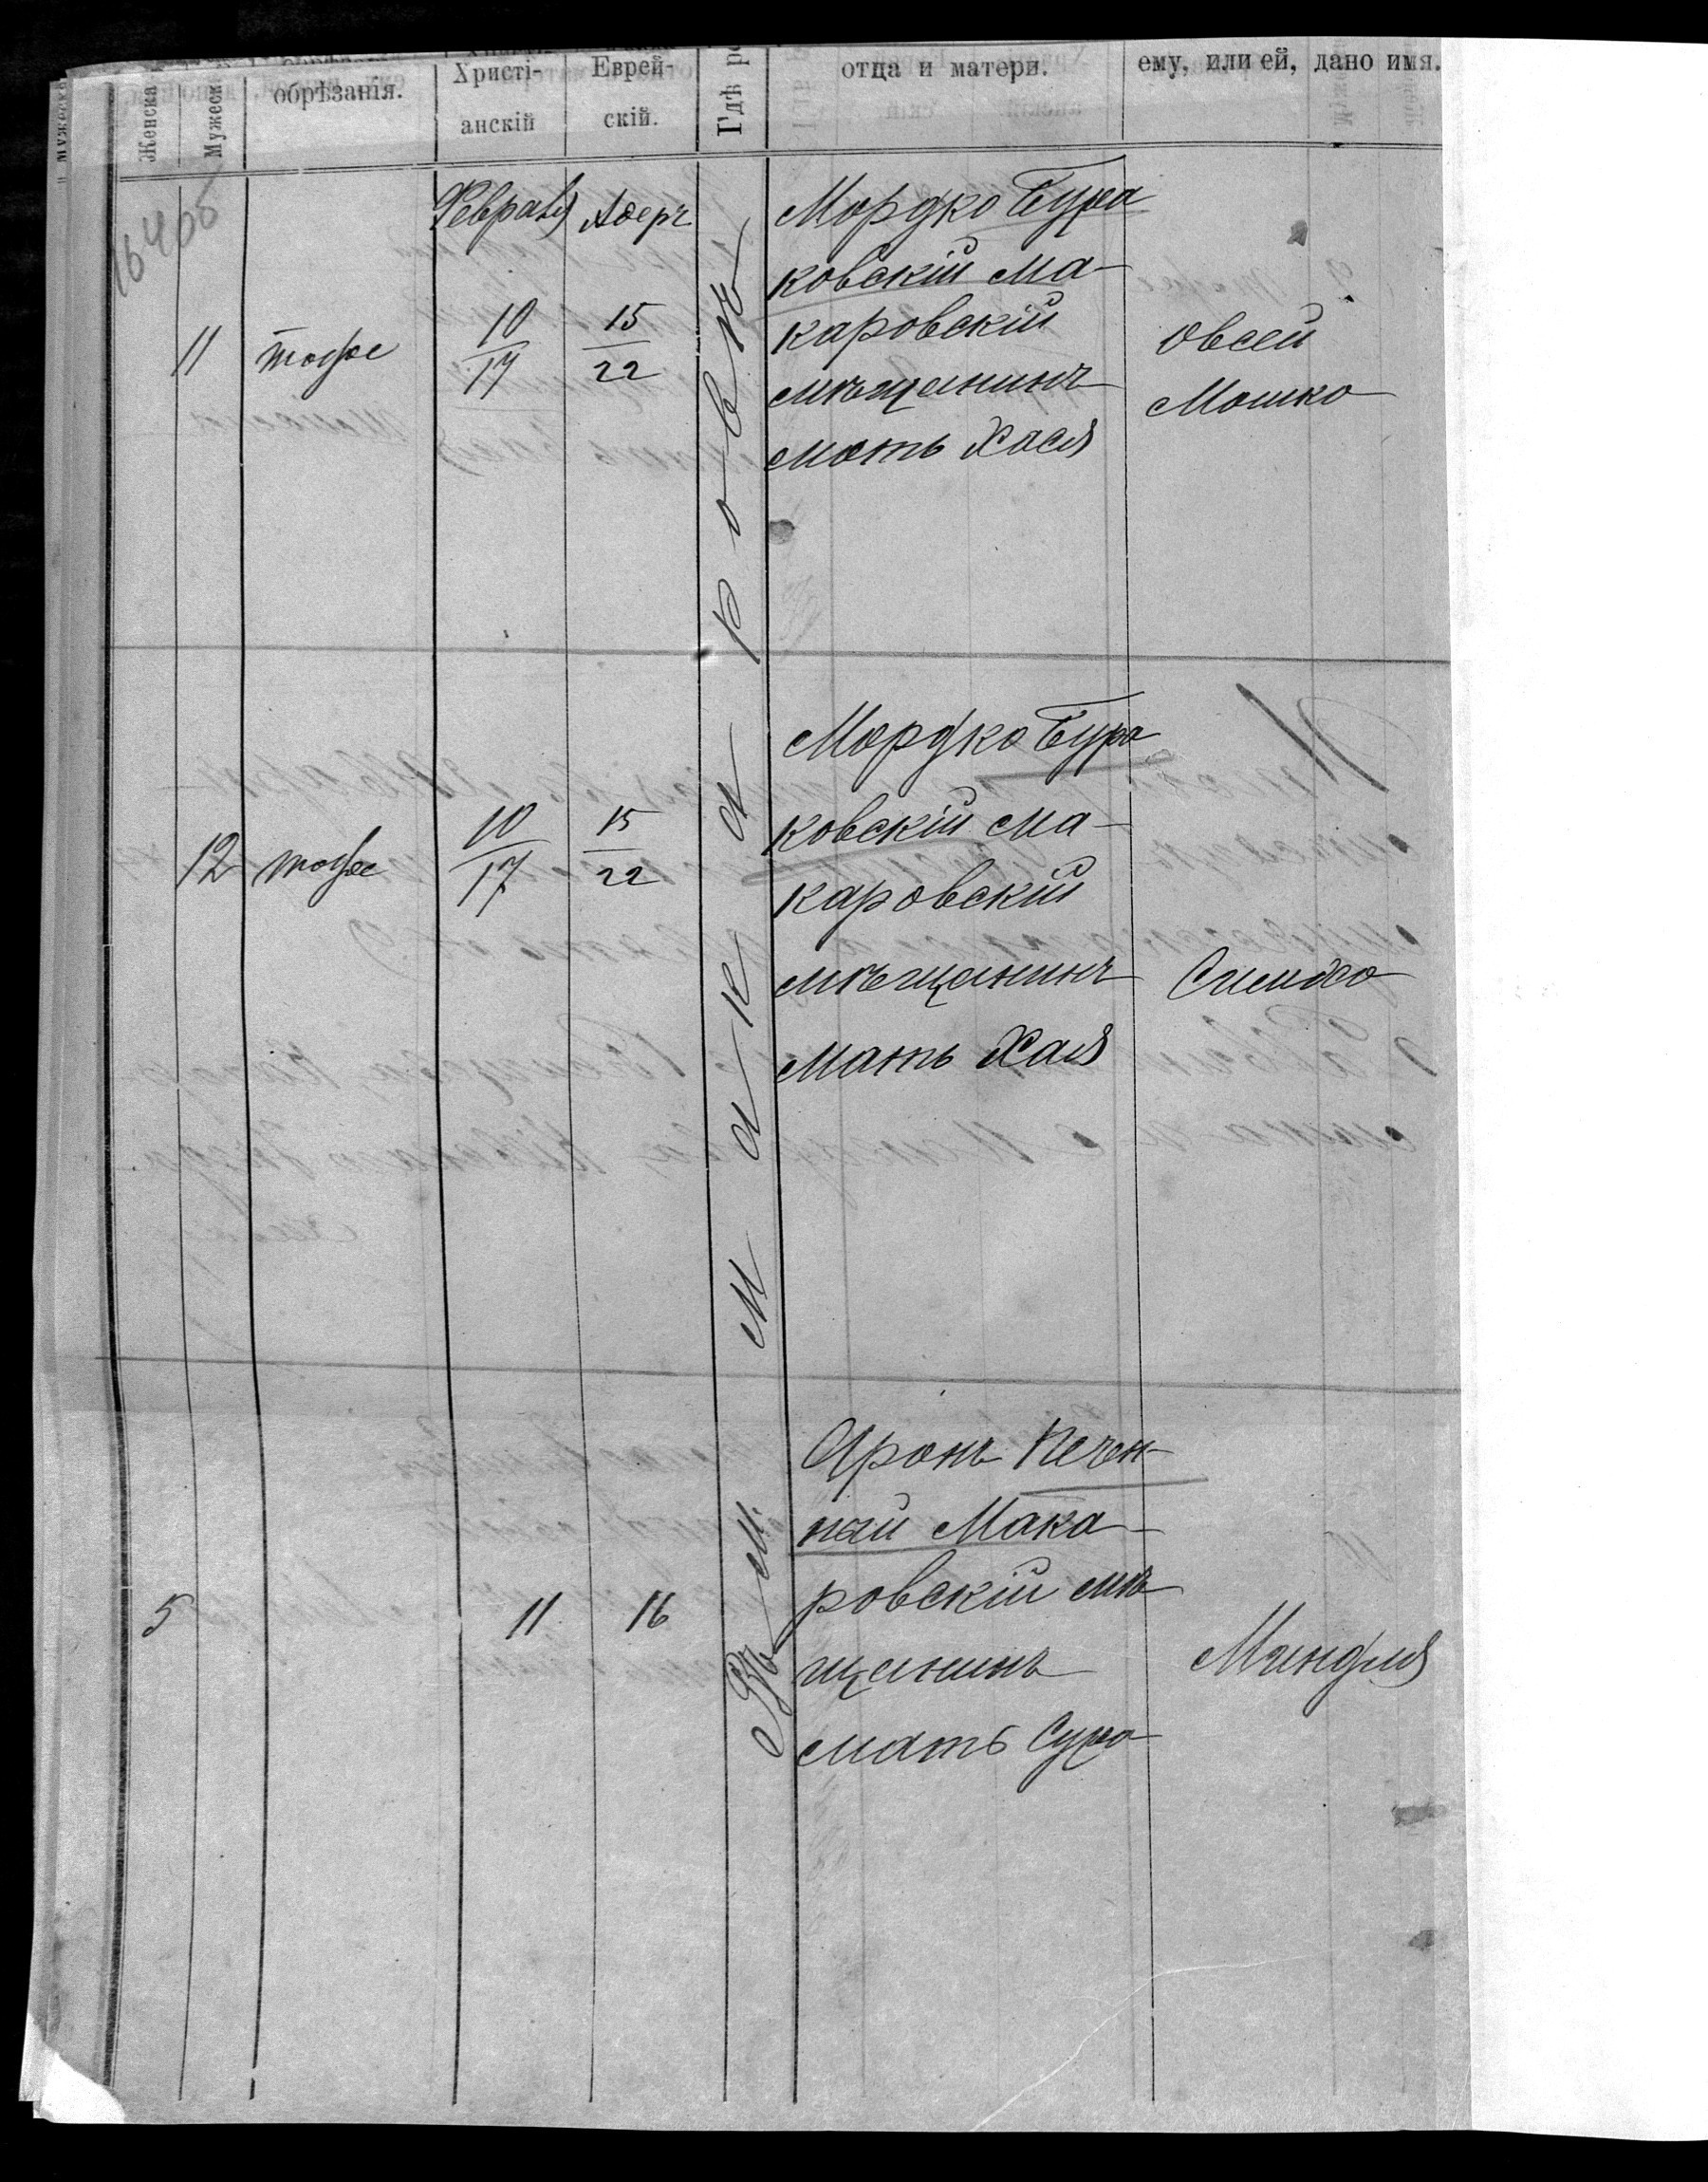 Женска
Мужеск
обрѣзанія.
Христі-
анскій
Еврей-
скій.
Гдѣ
отца и матери.
ему, или ей, дано имя.
Февраля Адеръ
11 тоже 10/17 15/22
Мордко Бура
ковскій Ма-
каровскій
мѣщанинъ
мать Хася
Овсей
Мошко
12 тоже 10/17 15/22
Мордко Бура
ковскій Ма-
каровскій
мѣщанинъ
Мать Хася
Симха
Въ м. Макаровѣ
5 11 16
Аронъ Печен-
ный Мака-
ровскій мѣ
щанинъ
мать Сура
Миндля